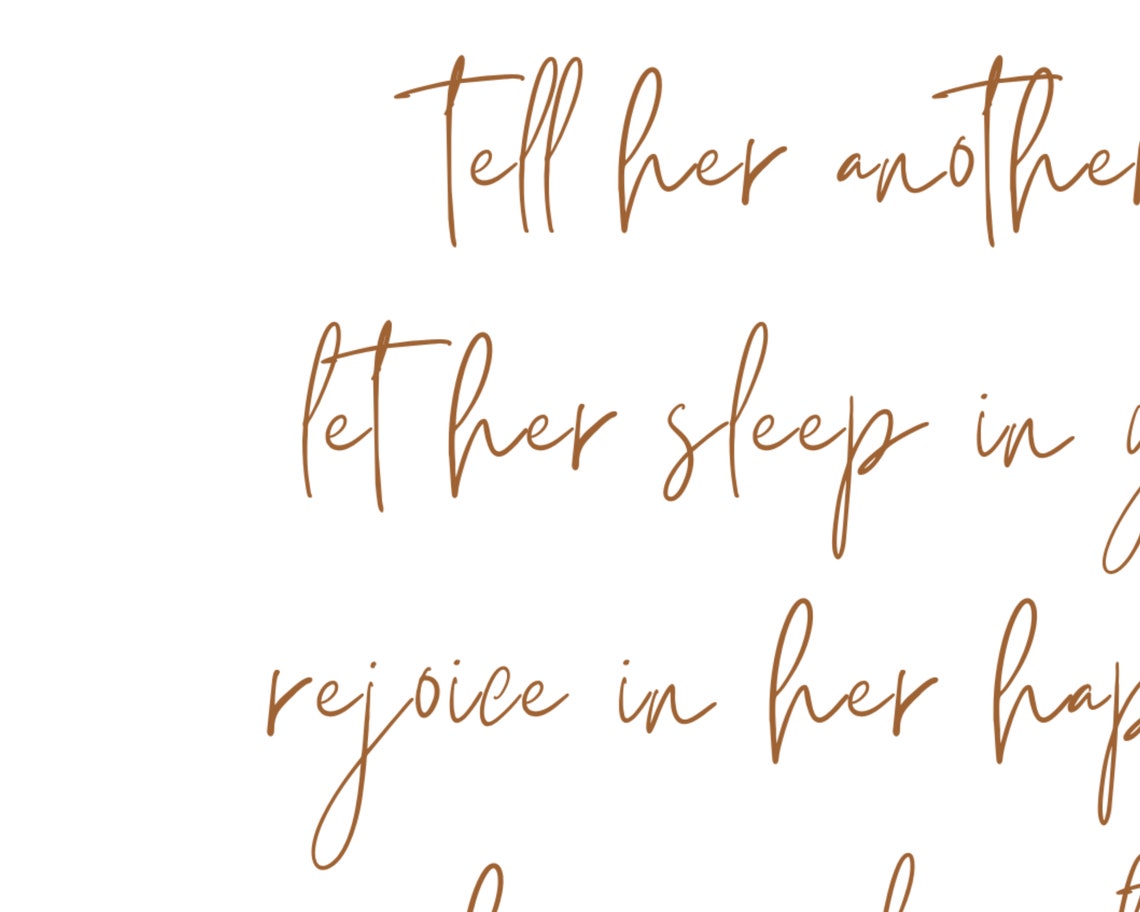 tell her another
let her sleep in y
rejoice in her hap